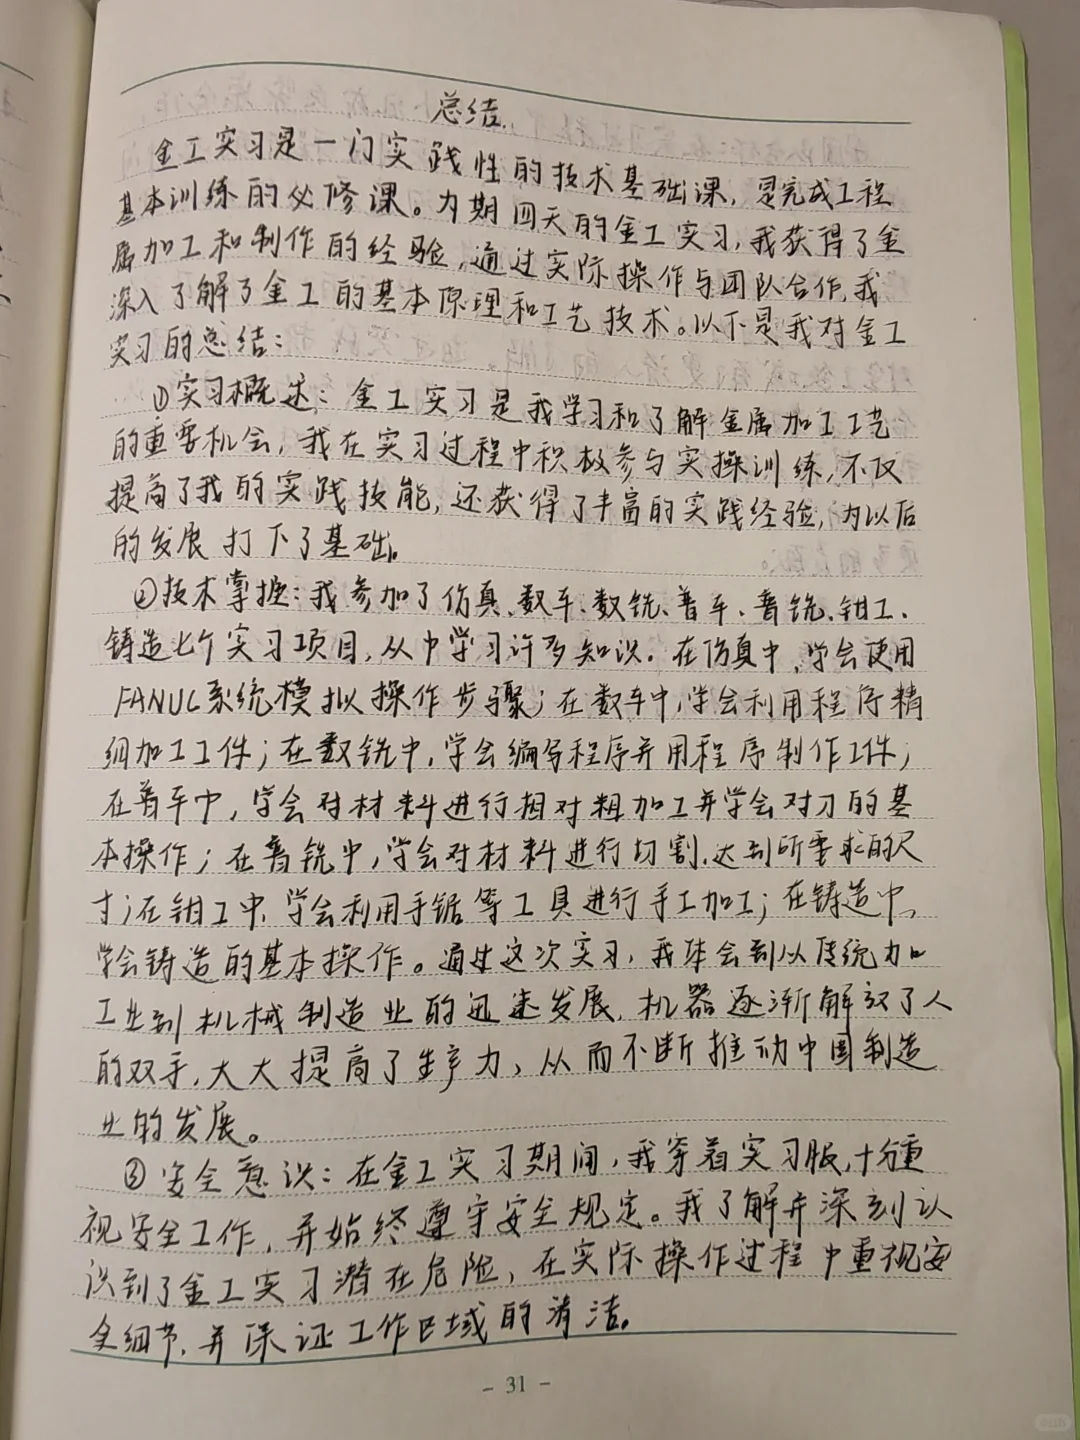 总结.
金工实习是一门实践性的技术基础课，是完成工程
基本训练的必修课。为期四天的金工实习，我获得了金
属加工和制作的经验，通过实际操作与团队合作，我
深入了解了金工的基本原理和工艺技术。以下是我对金工
实习的总结：
①实习概述：金工实习是我学习和了解金属加工工艺
的重要机会，我在实习过程中积极参与实操训练，不仅
提高了我的实践技能，还获得了丰富的实践经验，为以后
的发展打下了基础。
②技术掌握：我参加了仿真、数车、数铣、普车、普铣、钳工、
铸造七个实习项目，从中学习许多知识。在仿真中，学会使用
FANUC系统模拟操作步骤；在数车中，学会利用程序精
细加工工件；在数铣中，学会编写程序并用程序制作工件；
在普车中，学会对材料进行相对粗加工并学会对刀的基
本操作；在普铣中，学会对材料进行切割，达到所要求的尺
寸；在钳工中，学会利用手锯等工具进行手工加工；在铸造中，
学会铸造的基本操作。通过这次实习，我体会到从传统加
工业到机械制造业的迅速发展，机器逐渐解放了人
的双手，大大提高了生产力，从而不断推动中国制造
业的发展。
③安全意识：在金工实习期间，我穿着实习服，十分重
视安全工作，并始终遵守安全规定。我了解并深刻认
识到了金工实习潜在危险，在实际操作过程中重视安
全细节，并保证工作区域的清洁。
- 31 -